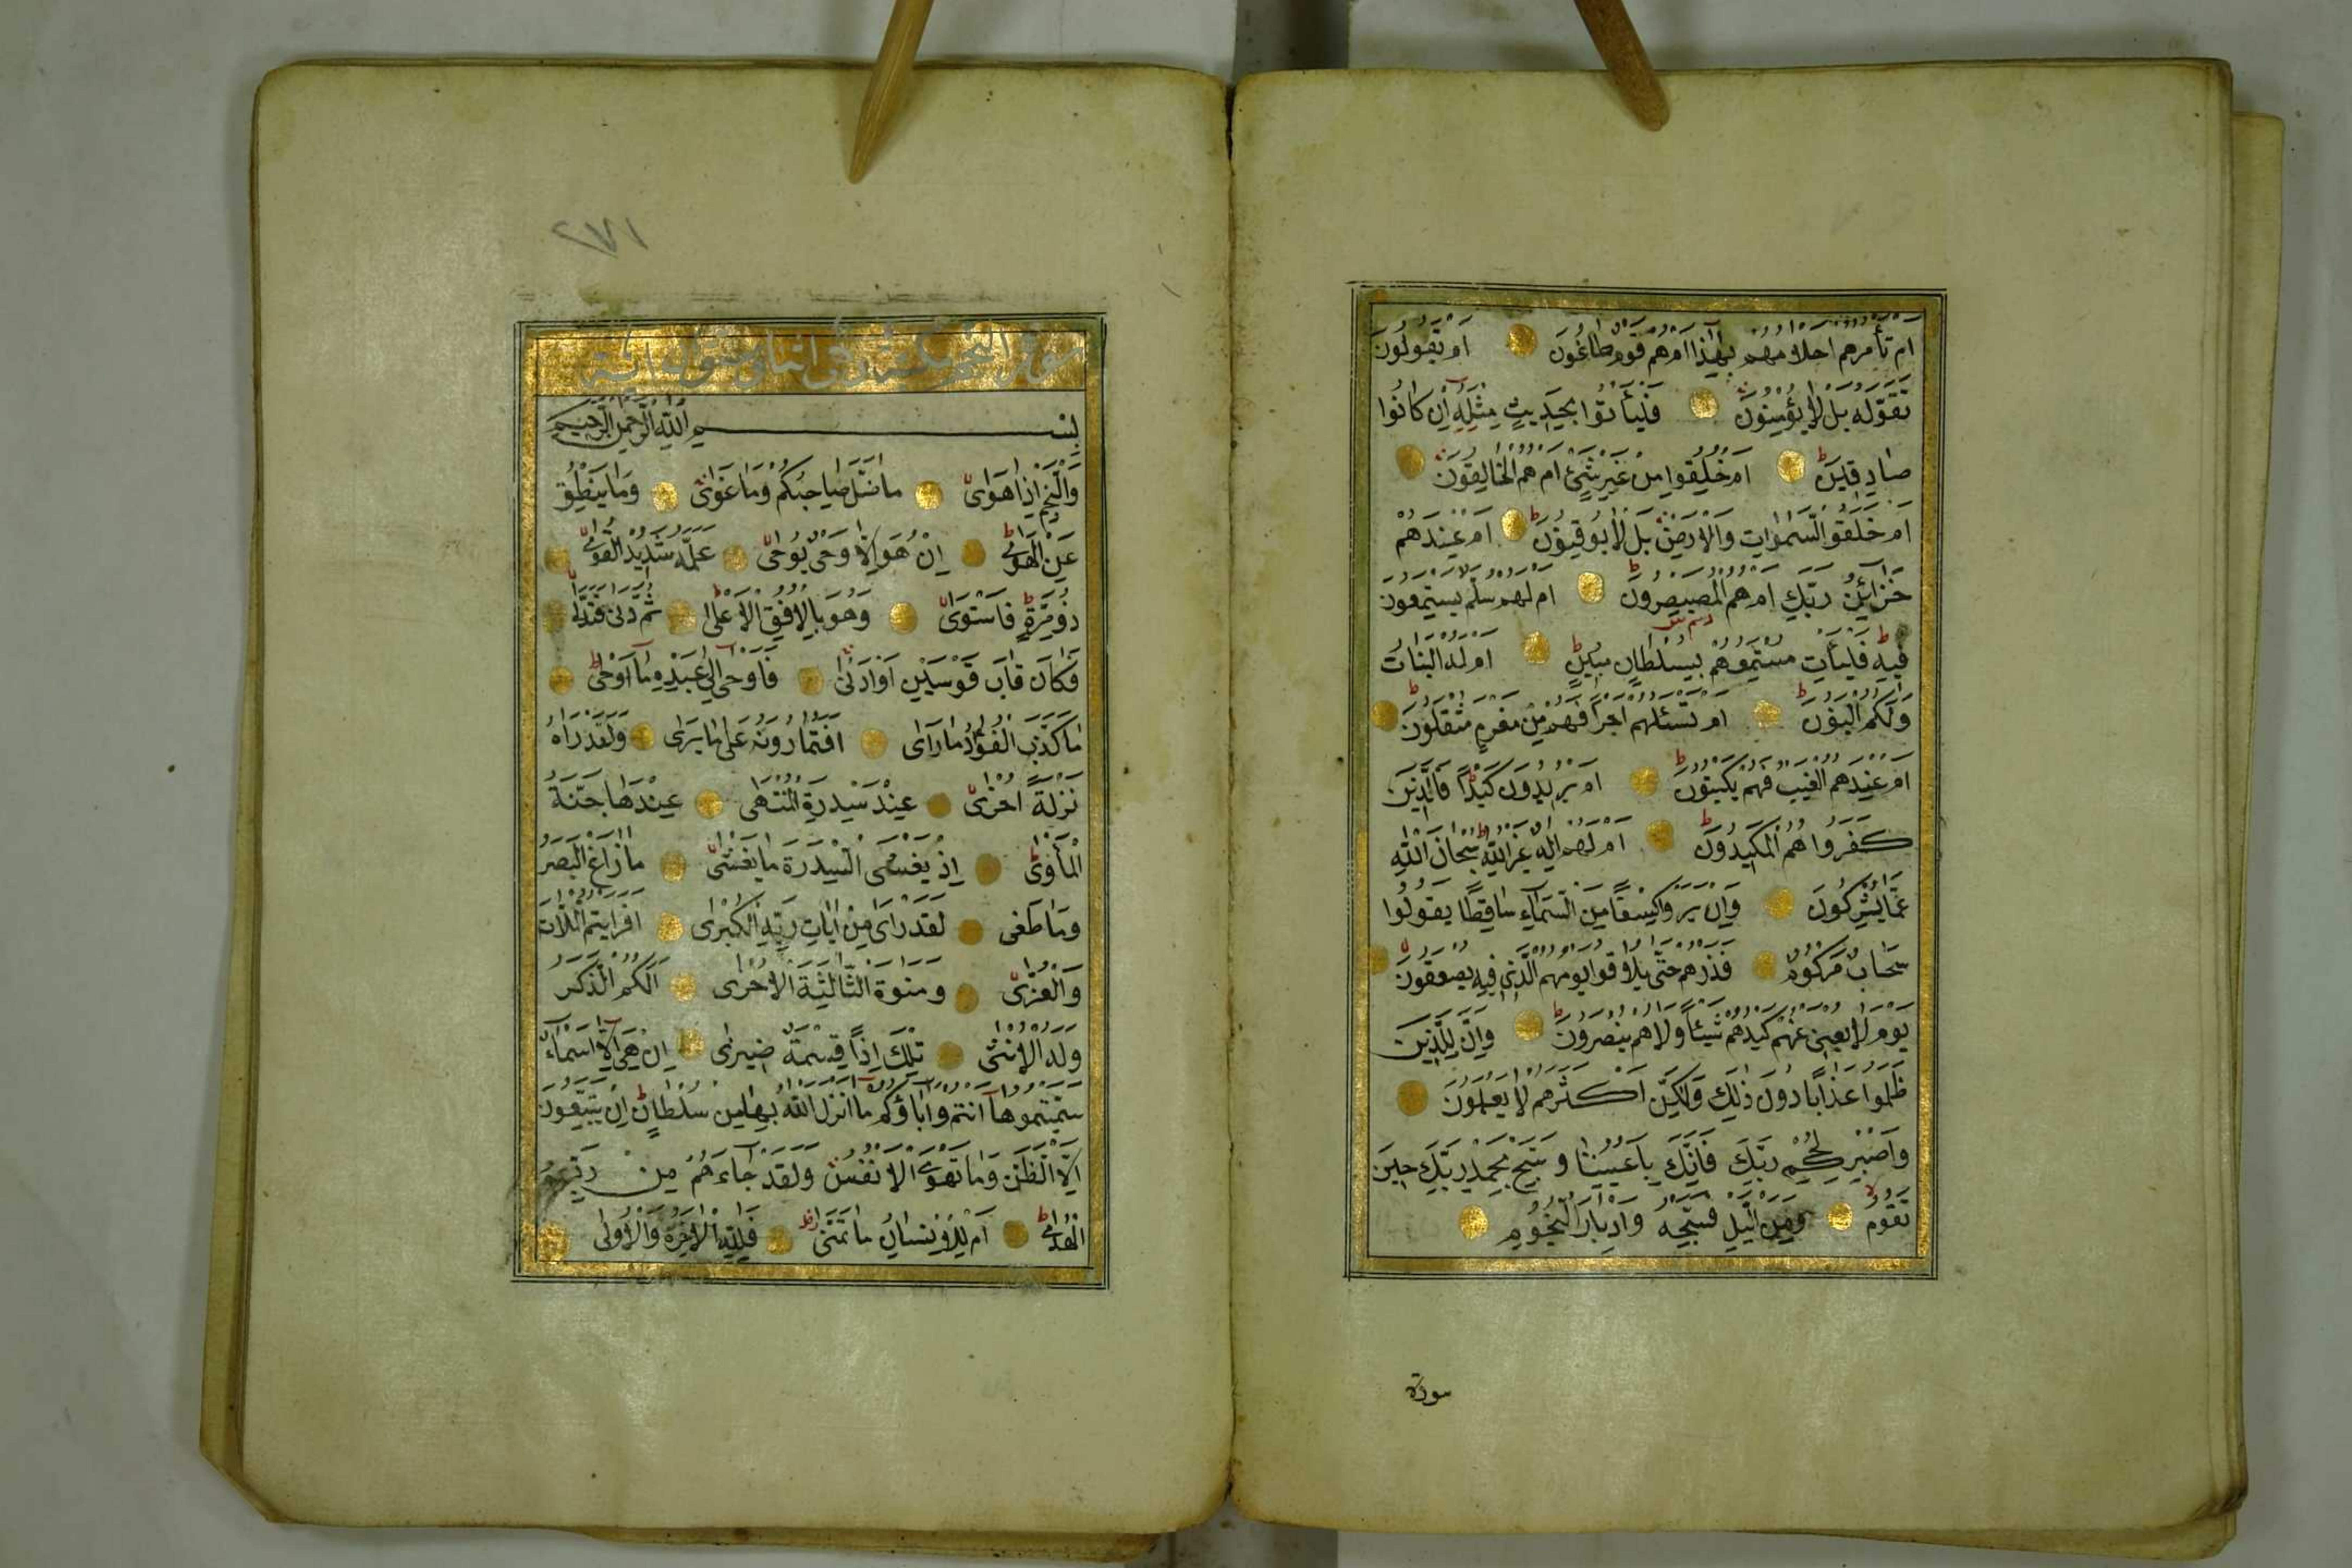 ام تأمرهم احلامهم بهذا ام هم قوم طاغون ام يقولون
تقوله بل لا يؤمنون فليأتوا بحديث مثله ان كانوا
صادقين ام خلقوا من غير شئ ام هم الخالقون
ام خلقوا السموات والارض بل لا يوقنون ام عندهم
خزائن ربك ام هم المصيصرون ام لهم سلم يستمعون
فيه فليأت مستمعهم بسلطان مبين ام له البنات
ولكم البنون ام تسئلهم اجرا فهم من مغرم مثقلون
ام عندهم الغيب فهم يكتبون ام يريدون كيدا فالذين
كفروا هم المكيدون ام لهم اله غير الله سبحان الله
عما يشركون وان يروا كسفا من السماء ساقطا يقولوا
سحاب مركوم فذرهم حتى يلاقوا يومهم الذي فيه يصعقون
يوم لا يغنى عنهم كيدهم شيئا ولا هم ينصرون وان للذين
ظلموا عذابا دون ذلك ولكن اكثرهم لا يعلمون
واصبر لحكم ربك فانك باعيننا وسبح بحمد ربك حين
تقوم ومن الليل فسبحه وادبار النجوم
سورة
٢٧١
سورة النجم مكية وهى اثنان وستون اية
بسم الله الرحمن الرحيم
والنجم اذا هوى ما ضل صاحبكم وما غوى وما ينطق
عن الهوى ان هو الا وحى يوحى علمه شديد القوى
ذو مرة فاستوى وهو بالافق الاعلى ثم دنى فتدلى
فكان قاب قوسين او ادنى فاوحى الى عبده ما اوحى
ما كذب الفؤاد ما راى افتمارونه على ما يرى ولقد راه
نزلة اخرى عند سدرة المنتهى عندها جنة
المأوى اذ يغشى السدرة ما يغشى ما زاغ البصر
وما طغى لقد راى من ايات ربه الكبرى افرايتم اللات
والعزى ومنوة الثالثة الاخرى الكم الذكر
وله الانثى تلك اذا قسمة ضيزى ان هى الا اسماء
سميتموها انتم واباؤكم ما انزل الله بها من سلطان ان يتبعون
الا الظن وما تهوى الانفس ولقد جاءهم من ربهم
الهدى ام للانسان ما تمنى فلله الاخرة والاولى